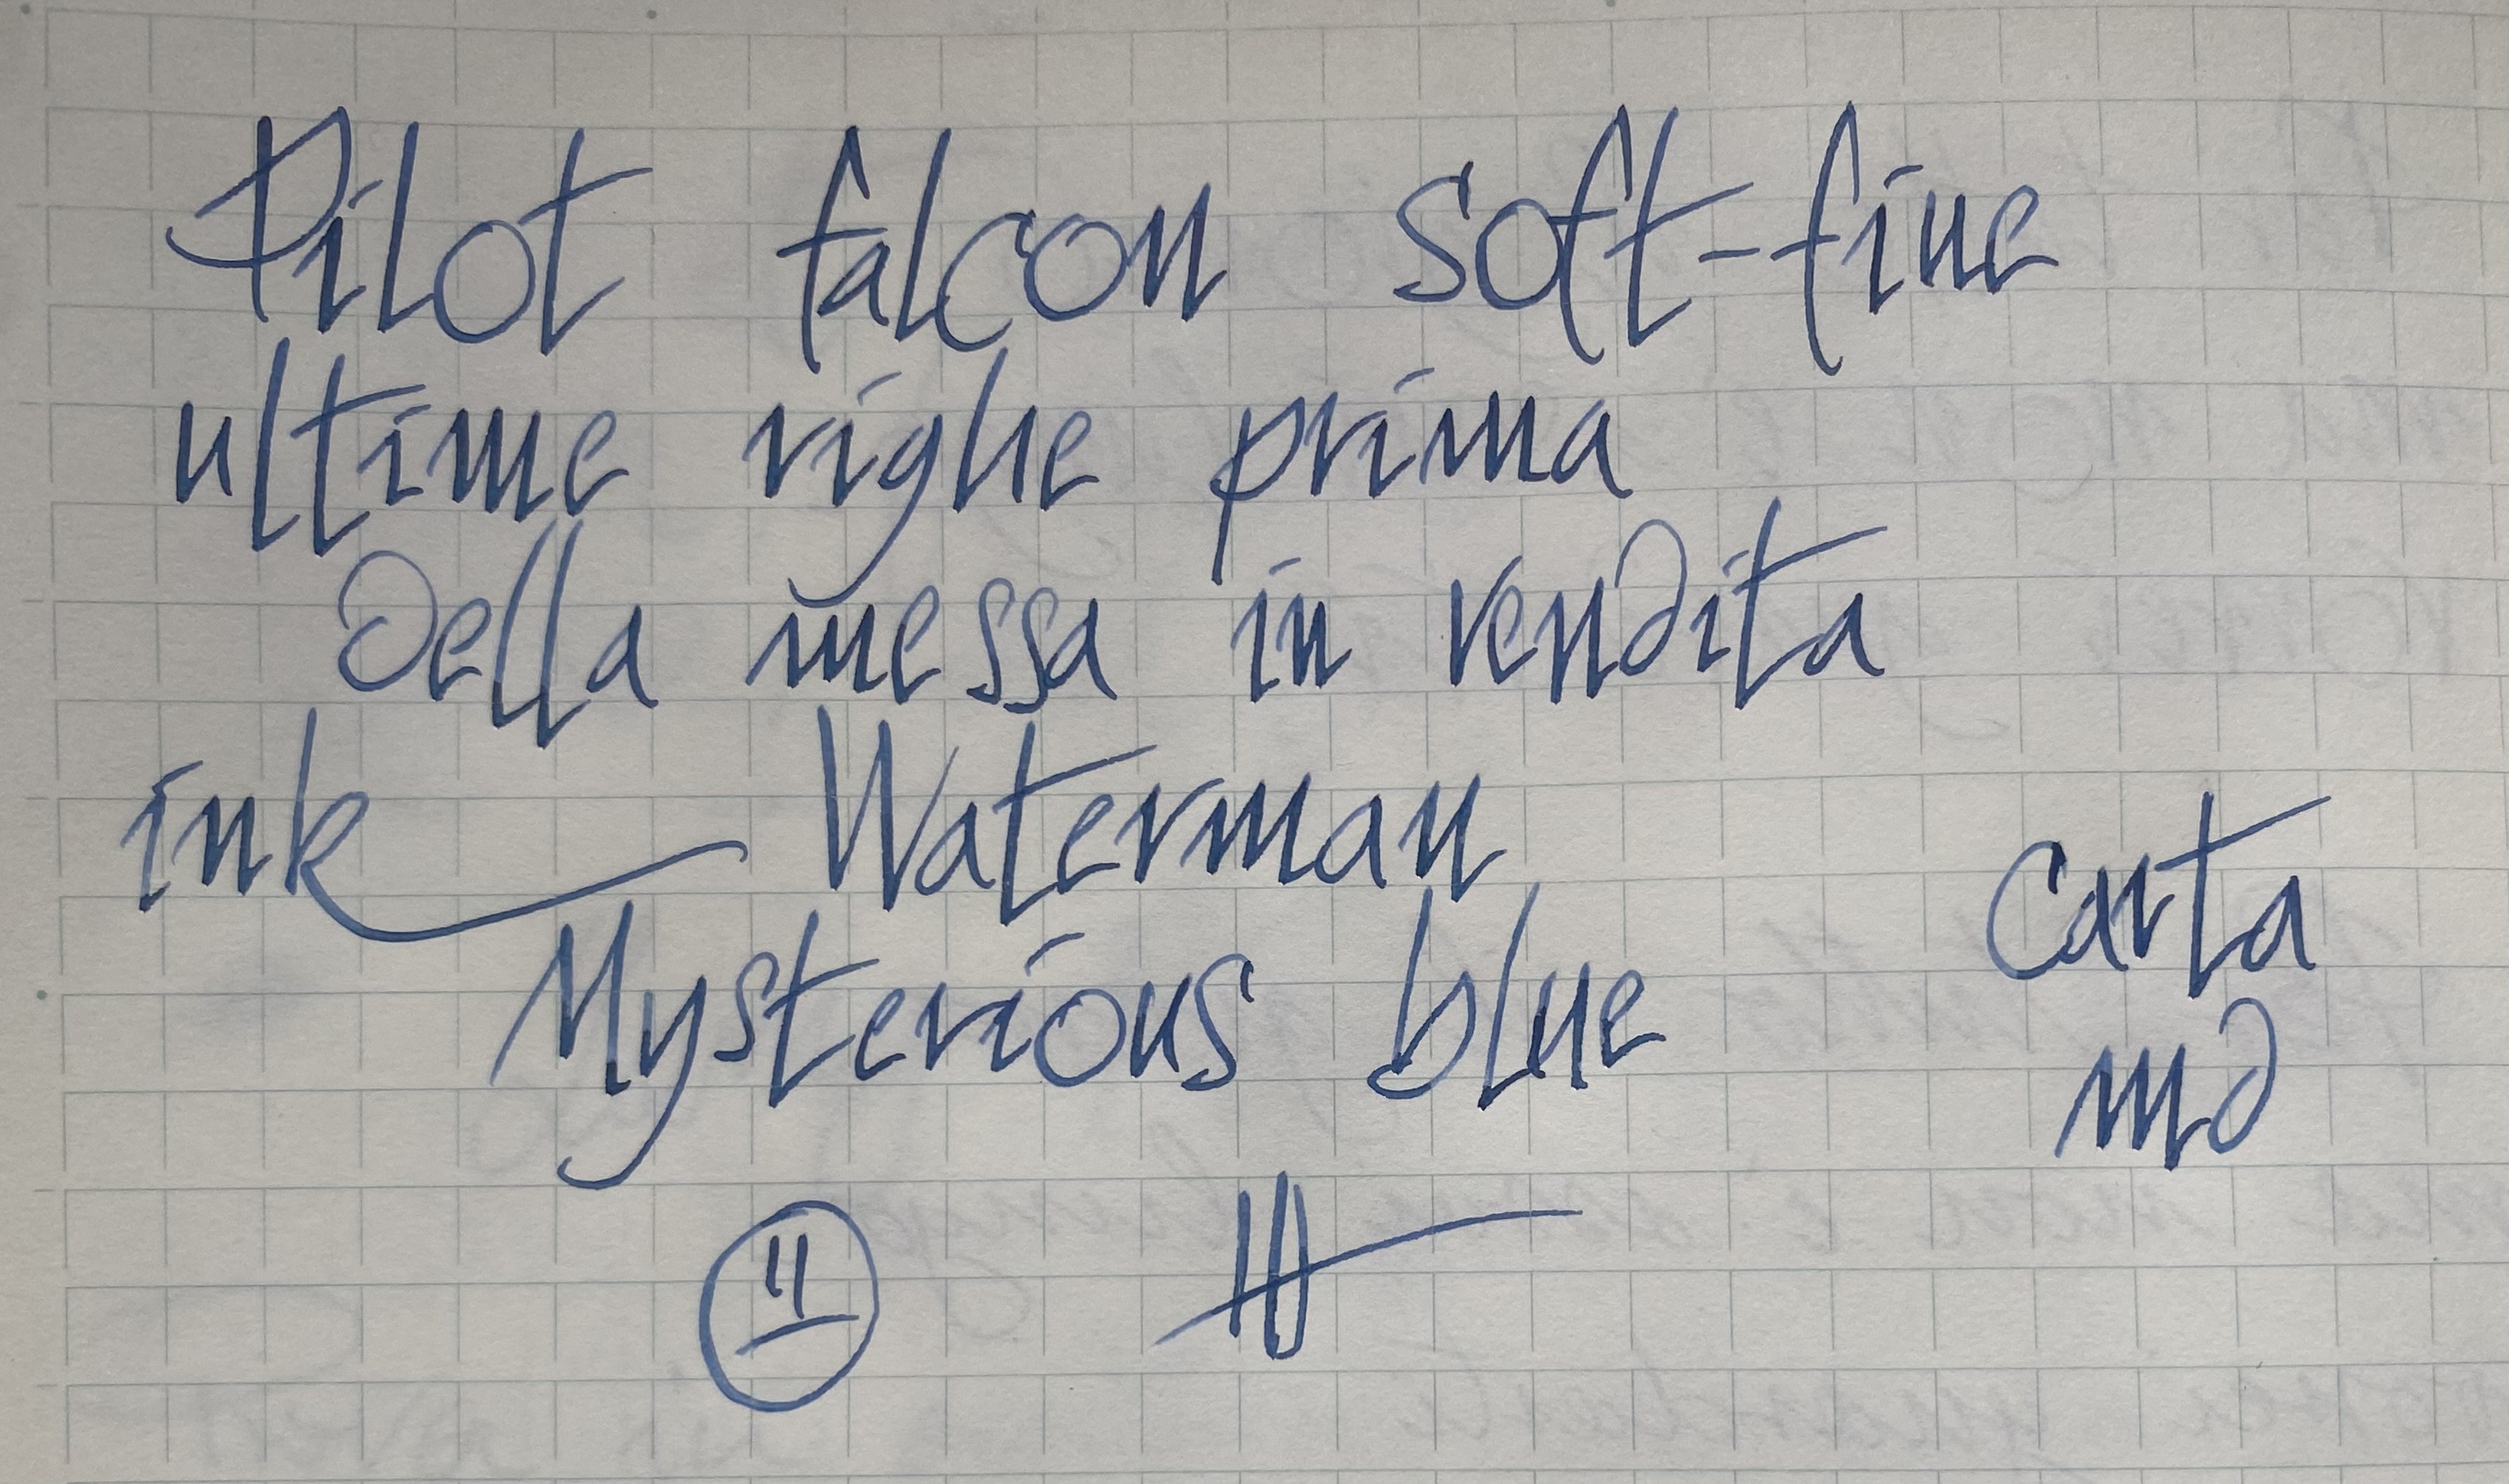 Pilot falcon soft-fine
ultime righe prima
della messa in vendita
ink Waterman
Mysterious blue
carta
md